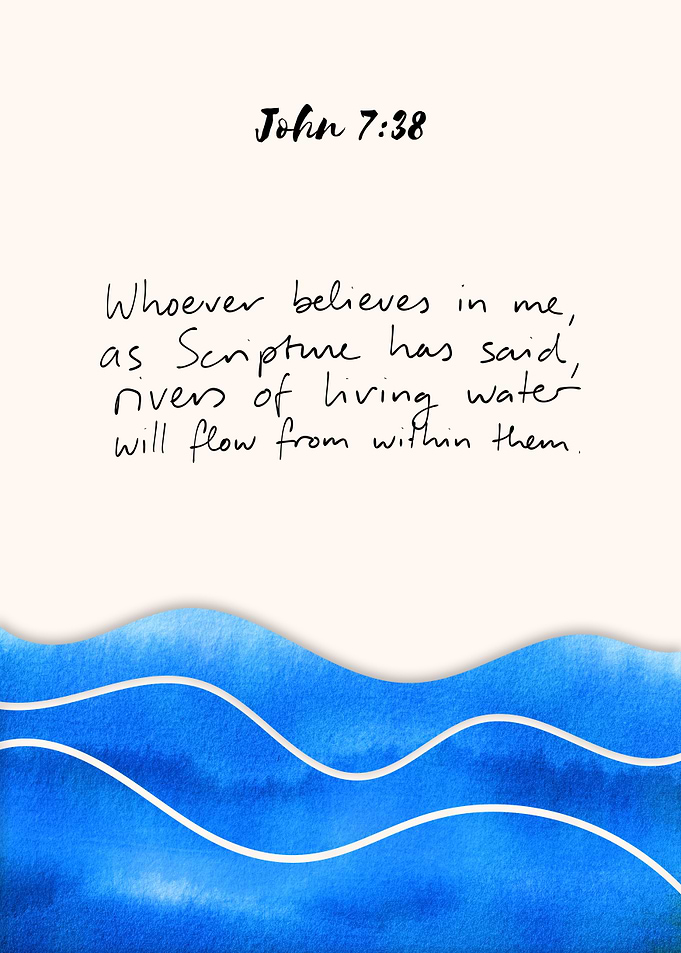 John 7:38
Whoever believes in me,
as Scripture has said,
rivers of living water
will flow from within them.